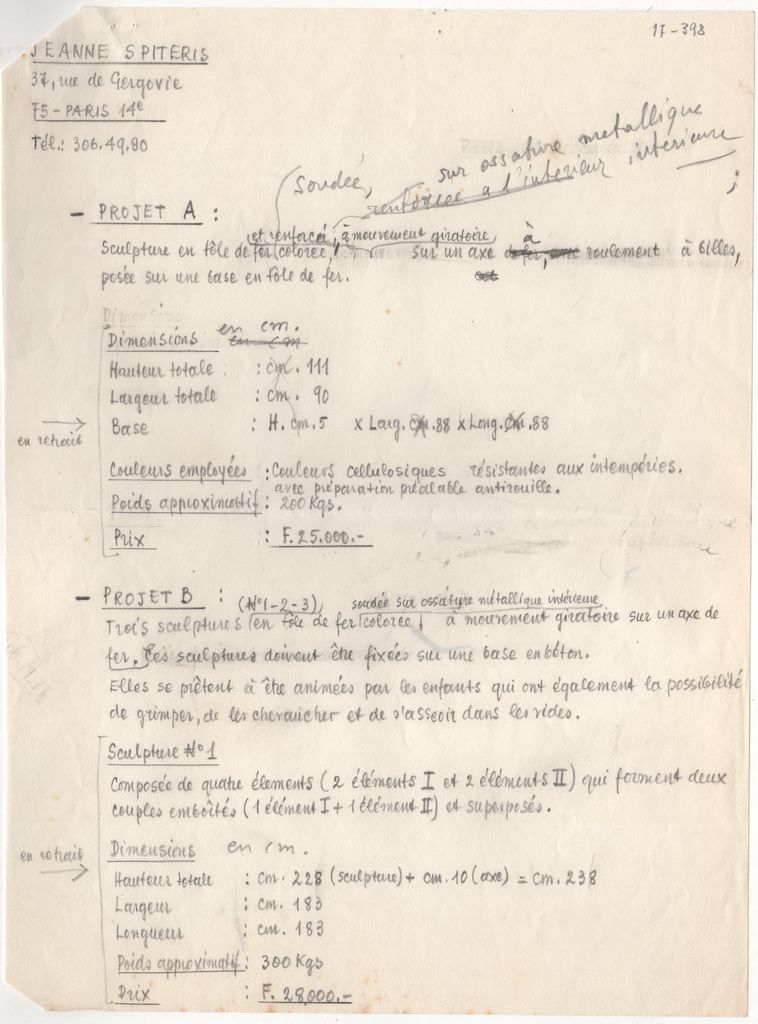 17-398
JEANNE SPITERIS
37, rue de Gergovie
75 - PARIS 14e
Tél.: 306.49.80
soudée, sur ossature metallique
renforcée a l'intérieur intérieure ;
- PROJET A :
et renforcé, à mouvement giratoire à
Sculpture en tôle de fer colorée, sur un axe de fer, roulement à billes,
posée sur une base en tôle de fer.
Dimensions
Dimensions en cm. en cm
Hauteur totale : cm. 111
Largeur totale : cm. 90
en retrait
Base : H. cm. 5 x Larg. cm. 88 x Long. cm. 88
Couleurs employées : Couleurs cellulosiques résistantes aux intempéries.
avec préparation préalable antirouille.
Poids approximatif : 200 Kgs.
Prix : F. 25.000.-
- PROJET B :
(N°1-2-3), soudée sur ossature métallique intérieure
Trois sculptures en tôle de fer colorée, à mouvement giratoire sur un axe de
fer. Ces sculptures doivent être fixées sur une base en béton.
Elles se prêtent à être animées par les enfants qui ont également la possibilité
de grimper, de les chevaucher et de s'asseoir dans les vides.
Sculpture N°1
Composée de quatre élements (2 éléments I et 2 éléments II) qui forment deux
couples emboîtés (1 élément I + 1 élément II) et superposés.
en retrait
Dimensions en cm.
Hauteur totale : cm. 228 (sculpture) + cm. 10 (axe) = cm. 238
Largeur : cm. 183
Longueur : cm. 183
Poids approximatif : 300 Kgs
Prix : F. 28,000.-